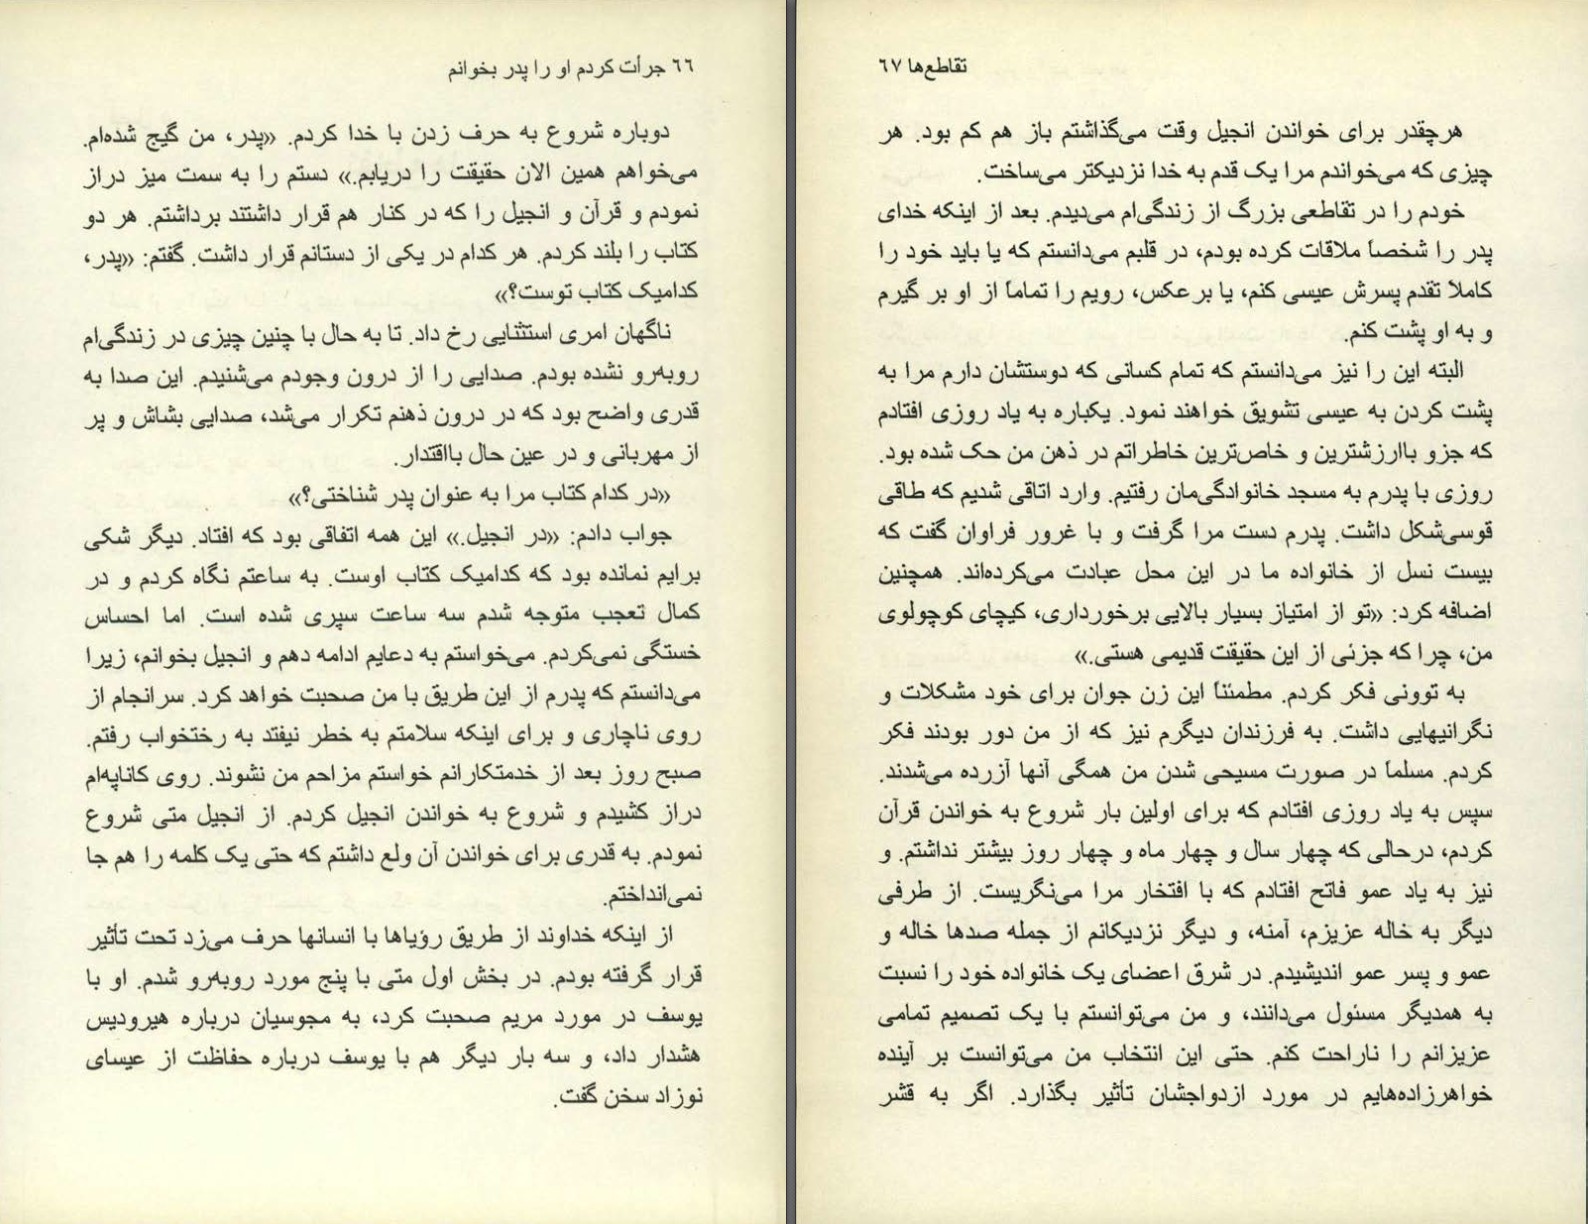 ٦٦ جرأت کردم او را پدر بخوانم
دوباره شروع به حرف زدن با خدا کردم. «پدر، من گیج شده‌ام.
می‌خواهم همین الان حقیقت را دریابم.» دستم را به سمت میز دراز
نمودم و قرآن و انجیل را که در کنار هم قرار داشتند برداشتم. هر دو
کتاب را بلند کردم. هر کدام در یکی از دستانم قرار داشت. گفتم: «پدر،
کدامیک کتاب توست؟»
ناگهان امری استثنایی رخ داد. تا به حال با چنین چیزی در زندگی‌ام
روبه‌رو نشده بودم. صدایی را از درون وجودم می‌شنیدم. این صدا به
قدری واضح بود که در درون ذهنم تکرار می‌شد، صدایی بشاش و پر
از مهربانی و در عین حال بااقتدار.
«در کدام کتاب مرا به عنوان پدر شناختی؟»
جواب دادم: «در انجیل.» این همه اتفاقی بود که افتاد. دیگر شکی
برایم نمانده بود که کدامیک کتاب اوست. به ساعتم نگاه کردم و در
کمال تعجب متوجه شدم سه ساعت سپری شده است. اما احساس
خستگی نمی‌کردم. می‌خواستم به دعایم ادامه دهم و انجیل بخوانم، زیرا
می‌دانستم که پدرم از این طریق با من صحبت خواهد کرد. سرانجام از
روی ناچاری و برای اینکه سلامتم به خطر نیفتد به رختخواب رفتم.
صبح روز بعد از خدمتکارانم خواستم مزاحم من نشوند. روی کاناپه‌ام
دراز کشیدم و شروع به خواندن انجیل کردم. از انجیل متی شروع
نمودم. به قدری برای خواندن آن ولع داشتم که حتی یک کلمه را هم جا
نمی‌انداختم.
از اینکه خداوند از طریق رؤیاها با انسانها حرف می‌زد تحت تأثیر
قرار گرفته بودم. در بخش اول متی با پنج مورد روبه‌رو شدم. او با
یوسف در مورد مریم صحبت کرد، به مجوسیان درباره هیرودیس
هشدار داد، و سه بار دیگر هم با یوسف درباره حفاظت از عیسای
نوزاد سخن گفت.
تقاطع‌ها ٦٧
هرچقدر برای خواندن انجیل وقت می‌گذاشتم باز هم کم بود. هر
چیزی که می‌خواندم مرا یک قدم به خدا نزدیکتر می‌ساخت.
خودم را در تقاطعی بزرگ از زندگی‌ام می‌دیدم. بعد از اینکه خدای
پدر را شخصاً ملاقات کرده بودم، در قلبم می‌دانستم که یا باید خود را
کاملاً تقدم پسرش عیسی کنم، یا برعکس، رویم را تماماً از او بر گیرم
و به او پشت کنم.
البته این را نیز می‌دانستم که تمام کسانی که دوستشان دارم مرا به
پشت کردن به عیسی تشویق خواهند نمود. یکباره به یاد روزی افتادم
که جزو باارزشترین و خاص‌ترین خاطراتم در ذهن من حک شده بود.
روزی با پدرم به مسجد خانوادگی‌مان رفتیم. وارد اتاقی شدیم که طاقی
قوسی‌شکل داشت. پدرم دست مرا گرفت و با غرور فراوان گفت که
بیست نسل از خانواده ما در این محل عبادت می‌کرده‌اند. همچنین
اضافه کرد: «تو از امتیاز بسیار بالایی برخورداری، کیچای کوچولوی
من، چرا که جزئی از این حقیقت قدیمی هستی.»
به توونی فکر کردم. مطمئناً این زن جوان برای خود مشکلات و
نگرانیهایی داشت. به فرزندان دیگرم نیز که از من دور بودند فکر
کردم. مسلماً در صورت مسیحی شدن من همگی آنها آزرده می‌شدند.
سپس به یاد روزی افتادم که برای اولین بار شروع به خواندن قرآن
کردم، درحالی که چهار سال و چهار ماه و چهار روز بیشتر نداشتم. و
نیز به یاد عمو فاتح افتادم که با افتخار مرا می‌نگریست. از طرفی
دیگر به خاله عزیزم، آمنه، و دیگر نزدیکانم از جمله صدها خاله و
عمو و پسر عمو اندیشیدم. در شرق اعضای یک خانواده خود را نسبت
به همدیگر مسئول می‌دانند، و من می‌توانستم با یک تصمیم تمامی
عزیزانم را ناراحت کنم. حتی این انتخاب من می‌توانست بر آینده
خواهرزاده‌هایم در مورد ازدواجشان تأثیر بگذارد. اگر به قشر